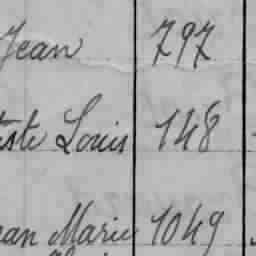 Jean 797
iste Louis 148
ean Marie 1049